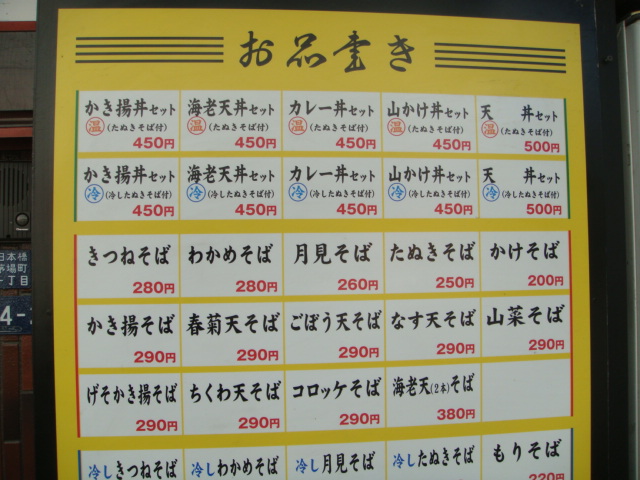 お品書き
かき揚丼セット 海老天丼セット カレー丼セット 山かけ丼セット 天 丼セット
温(たぬきそば付) 温(たぬきそば付) 温(たぬきそば付) 温(たぬきそば付) 温(たぬきそば付)
450円 450円 450円 450円 500円
かき揚丼セット 海老天丼セット カレー丼セット 山かけ丼セット 天 丼セット
冷(冷したぬきそば付) 冷(冷したぬきそば付) 冷(冷したぬきそば付) 冷(冷したぬきそば付) 冷(冷したぬきそば付)
450円 450円 450円 450円 500円
きつねそば わかめそば 月見そば たぬきそば かけそば
280円 280円 260円 250円 200円
かき揚そば 春菊天そば ごぼう天そば なす天そば 山菜そば
290円 290円 290円 290円 290円
げそかき揚そば ちくわ天そば コロッケそば 海老天(2本)そば
290円 290円 290円 380円
冷しきつねそば 冷しわかめそば 冷し月見そば 冷したぬきそば もりそば
220円
日本橋
茅場町
丁目
4-